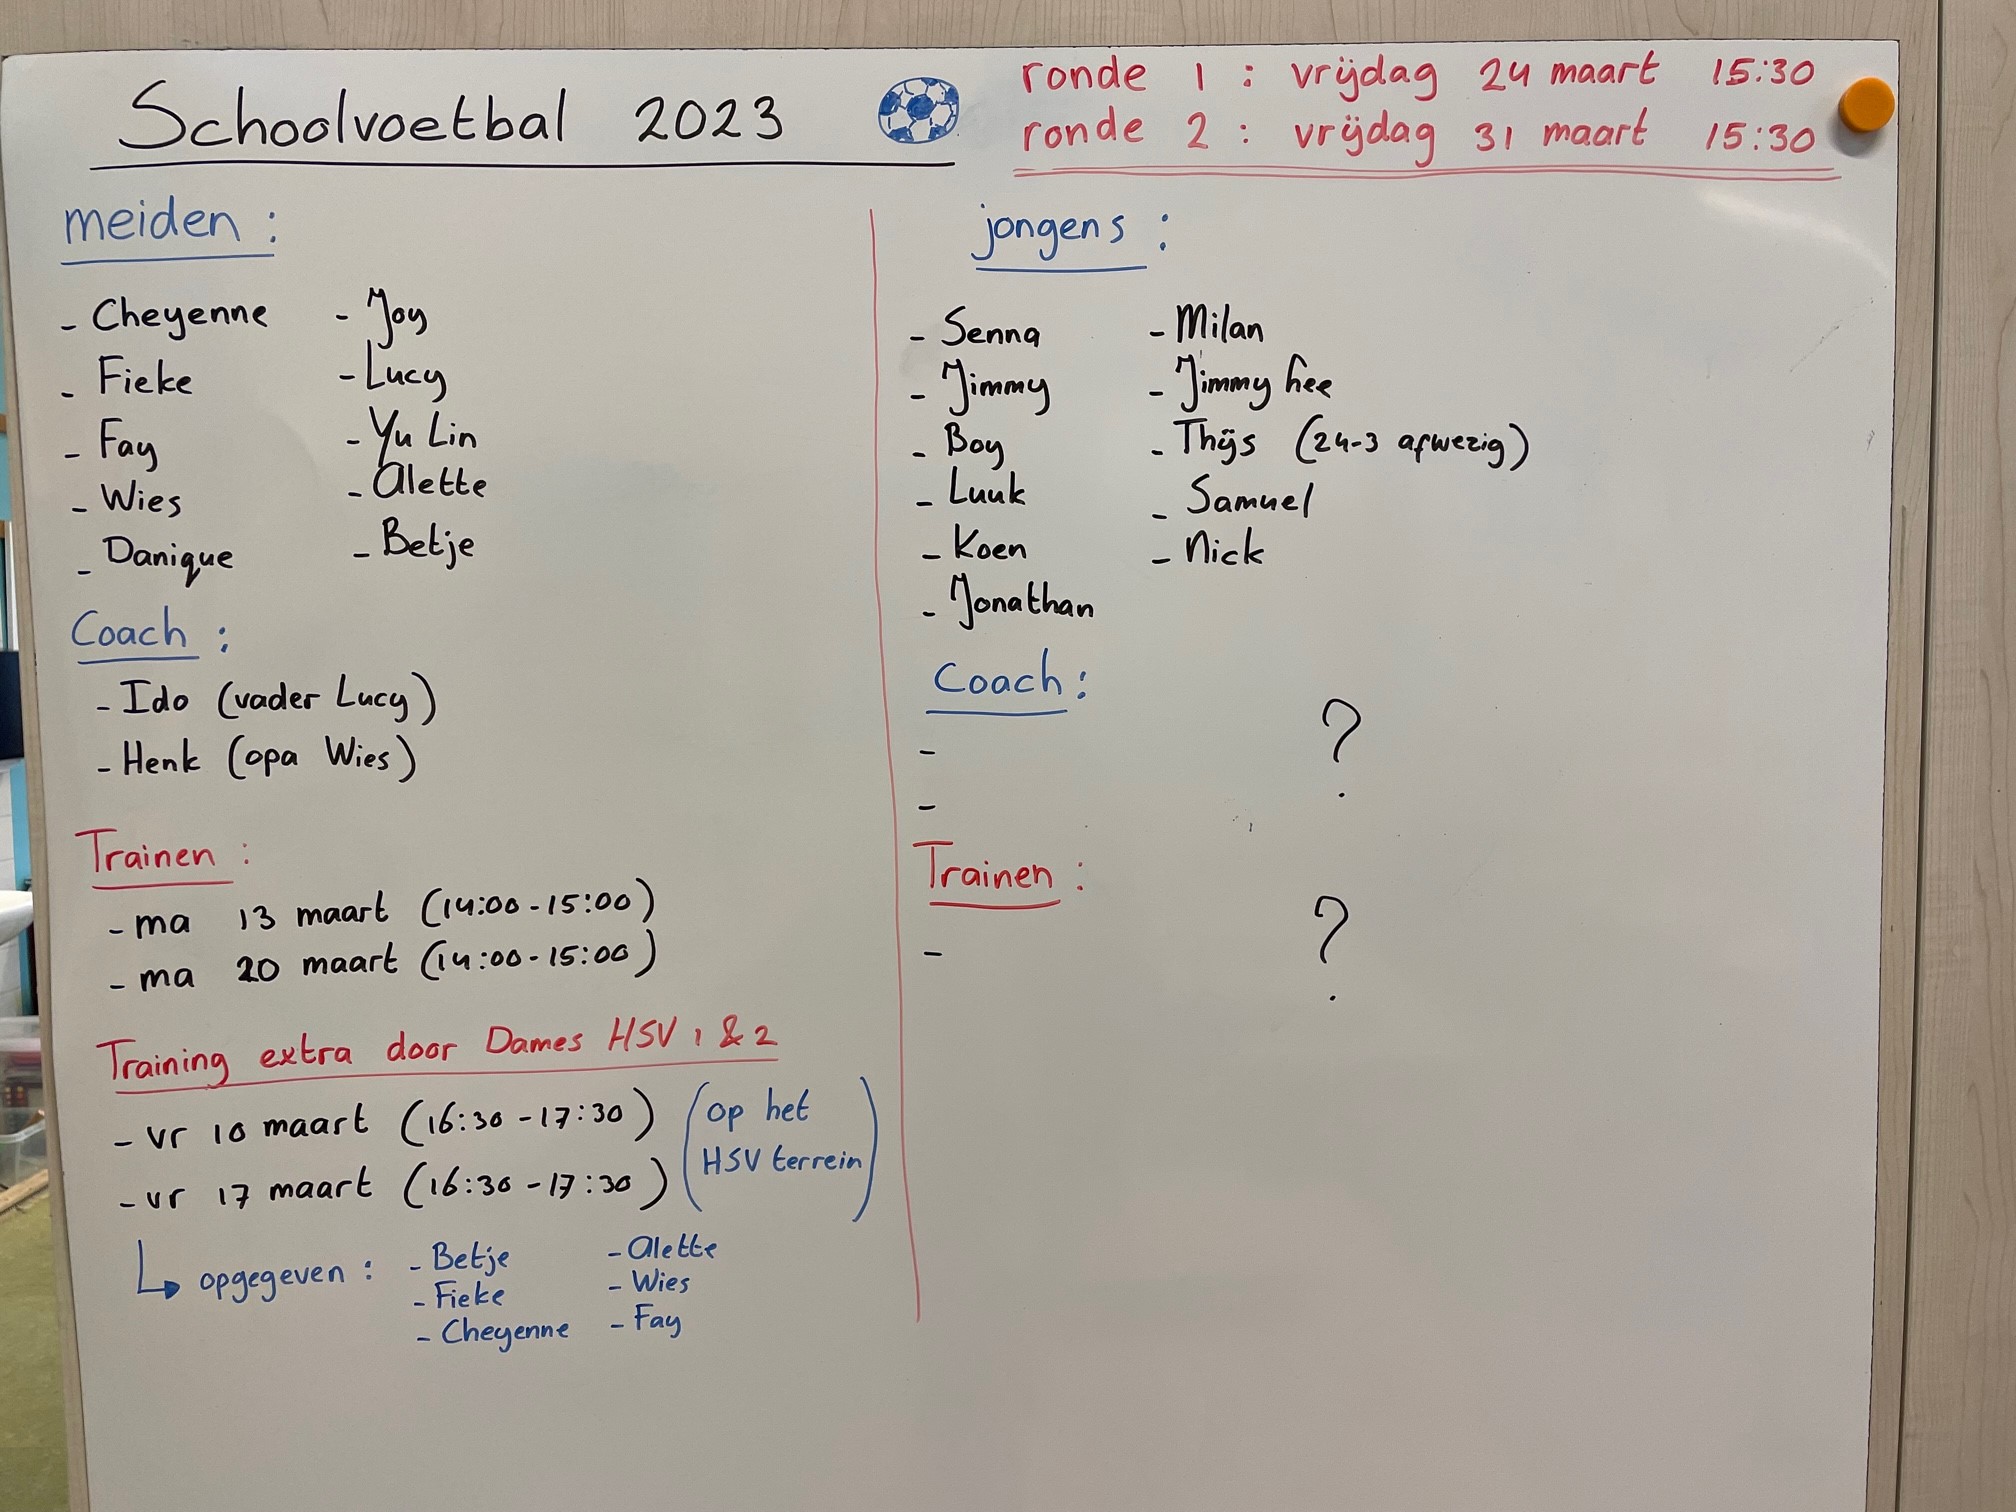 Schoolvoetbal 2023
ronde 1 : vrijdag 24 maart 15:30
ronde 2 : vrijdag 31 maart 15:30
meiden :
- Cheyenne - Joy
- Fieke - Lucy
- Fay - Yu Lin
- Wies - Alette
- Danique - Betje
Coach :
- Ido (vader Lucy)
- Henk (opa Wies)
Trainen :
- ma 13 maart (14:00-15:00)
- ma 20 maart (14:00-15:00)
Training extra door Dames HSV 1 & 2
- vr 10 maart (16:30-17:30)
- vr 17 maart (16:30-17:30)
(op het
HSV terrein)
opgegeven : - Betje - Alette
- Fieke - Wies
- Cheyenne - Fay
jongens :
- Senna - Milan
- Jimmy - Jimmy hee
- Boy - Thijs (24-3 afwezig)
- Luuk - Samuel
- Koen - Nick
- Jonathan
Coach :
- ?
-
Trainen :
- ?